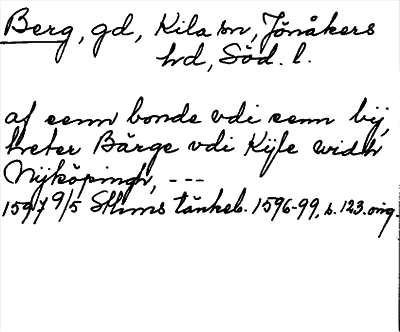 Berg, gd, Kila sn, Jönåkers
hd, Söd. l.
af senn bonde vdi senn bÿ,
heter Bärge vdi Kÿle widh
Nÿköpingh, ---
1597 9/5 Sthms tänkeb. 1596-99, s. 123. orig.